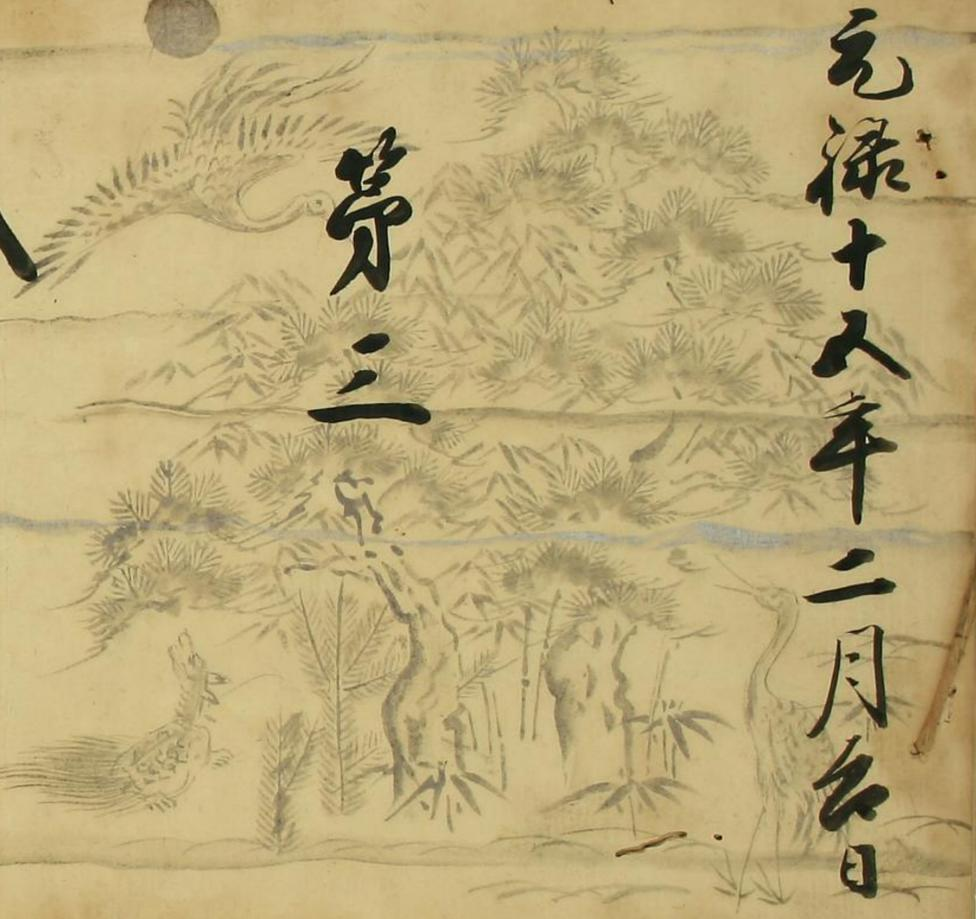 元禄十五年二月吉日
第三